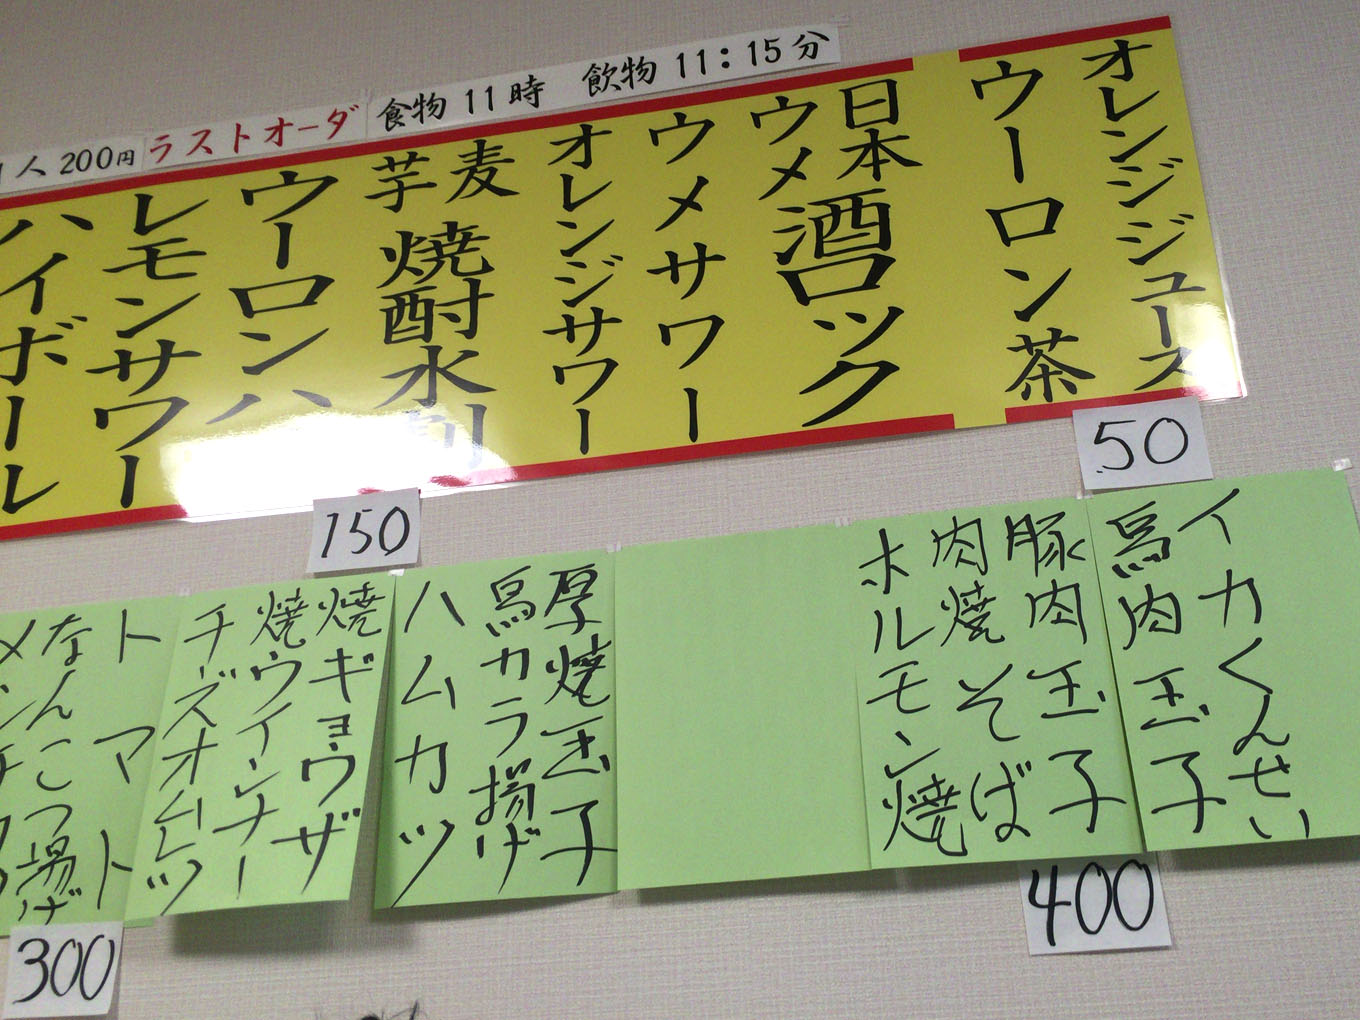 1人200円 ラストオーダ 食物11時 飲物11:15分
オレンジジュース
ウーロン茶
日本酒
ウメロック
ウメサワー
オレンジサワー
麦
芋
焼酎水割
ウーロンハ
レモンサワー
ハイボール
50
150
イカくんせい
馬肉玉子
豚肉玉子
肉焼そば
ホルモン焼
厚焼玉子
鳥カラ揚げ
ハムカツ
焼ギョウザ
焼ウインナー
チーズオムレツ
トマト
なんこつ揚げ
メンチカツ
400
300